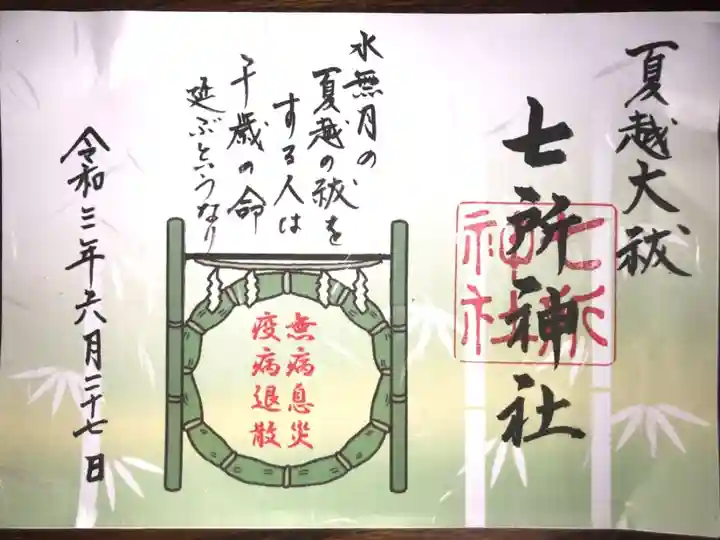 夏越大祓
七所神社
七所
神社
水無月の
夏越の祓を
する人は
千歳の命
延ぶというなり
無病息災
疫病退散
令和三年六月二十七日